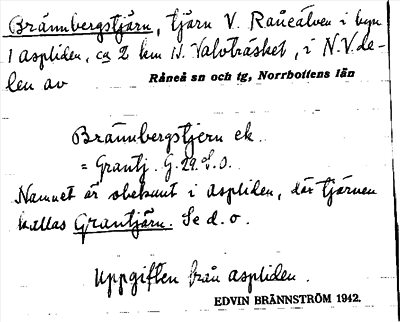 Brännbergstjärn, tjärn V. Råneälven i byn
1 Aspliden, ca 2 km N. Valvträsket, i N.V. de-
len av Råneå sn och tg, Norrbottens län
Brännbergstjern ek.
= Grantj. G. 29. f. 0.
Namnet är obekant i Aspliden, där tjärnen
kallas Grantjärn. Se d. o.
Uppgiften från Aspliden.
EDVIN BRÄNNSTRÖM 1942.